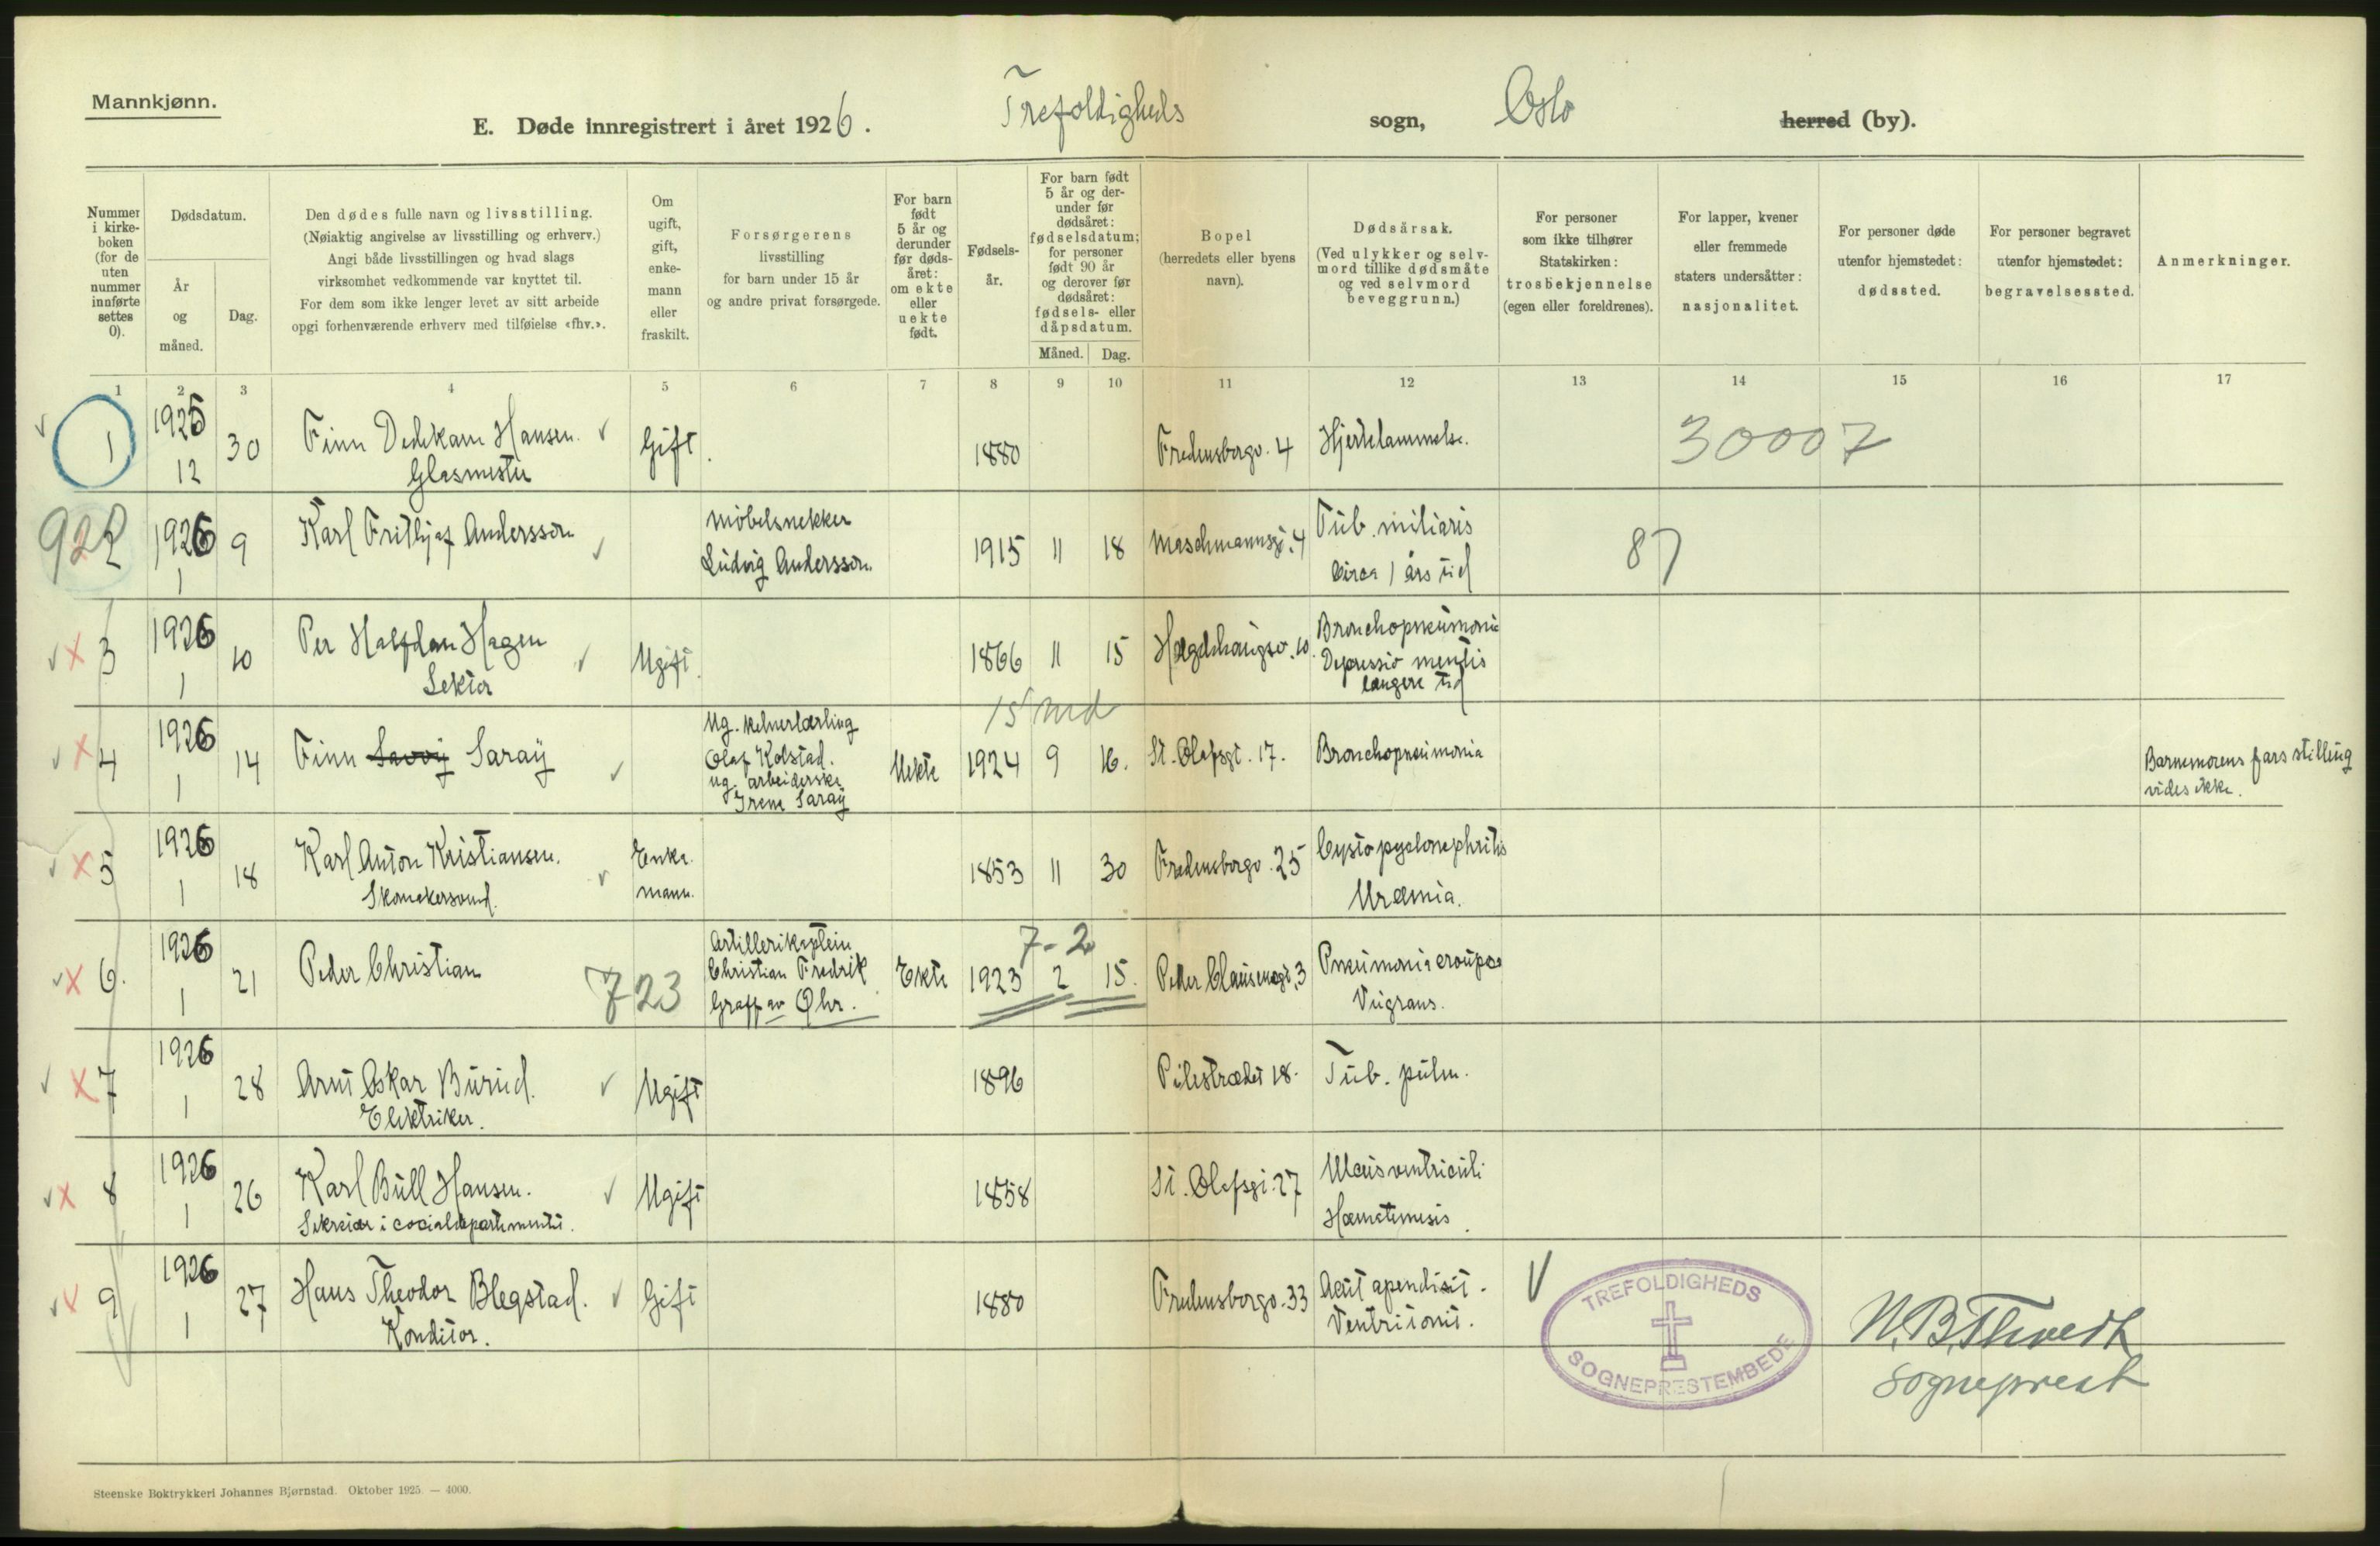 Mannkjønn.
E. Døde innregistrert i året 1926. Trefoldigheds sogn, Oslo herred (by).
Nummer i kirkeboken (for de uten nummer innførte settes 0).
Dødsdatum.
År og måned.
Dag.
Den dødes fulle navn og livsstilling.
(Nøiaktig angivelse av livsstilling og erhverv.)
Angi både livsstillingen og hvad slags
virksomhet vedkommende var knyttet til.
For dem som ikke lenger levet av sitt arbeide
opgi forhenværende erhverv med tilføielse «fhv.».
Om ugift, gift, enkemann eller fraskilt.
Forsørgerens
livsstilling
for barn under 15 år
og andre privat forsørgede.
For barn født 5 år og derunder før dødsåret: om ekte eller uekte født.
Fødselsår.
For barn født 5 år og derunder før dødsåret: fødselsdatum; for personer født 90 år og derover før dødsåret: fødsels- eller dåpsdatum.
Måned. Dag.
Bopel
(herredets eller byens
navn).
Dødsårsak.
(Ved ulykker og selvmord tillike dødsmåte og ved selvmord beveggrunn.)
For personer
som ikke tilhører
Statskirken:
trosbekjennelse
(egen eller foreldrenes).
For lapper, kvener
eller fremmede
staters undersåtter:
nasjonalitet.
For personer døde
utenfor hjemstedet:
dødssted.
For personer begravet
utenfor hjemstedet:
begravelsessted.
Anmerkninger.
1 2 3 4 5 6 7 8 9 10 11 12 13 14 15 16 17
1 1925 12 30 Finn Dedekam Hansen. Glasmester Gift. 1880 Fredensborgv. 4 Hjertelammelse. 30007
2 922 1926 1 9 Karl Frithjof Andersson Møbelsnekker Ludvig Andersson. 1915 11 18 Maschmannsgt. 4 Tub. miliaris circa 1 års tid 87
3 1926 1 10 Per Halfdan Hagen Lektor Ugift. 1866 11 15 Hægdehaugsv. 10. Bronchopneumonia Depressio mentis længere tid
15 md
4 1926 1 14 Finn Savoy Saray Ug. kelnerlærling Olaf Kolstad. ug. arbeiderske Irene Saray Uekte 1924 9 16. St. Olafsgt. 17. Bronchopneumonia Barnemorens fars stilling vides ikke.
5 1926 1 18 Karl Anton Kristiansen. Skomakersvend. Enkemann. 1853 11 30 Fredensborgv. 25 Cystopyelonephritis Uræmia.
7-2
6. 1926 1 21 Peder Christian 723 Artillerikaptein Christian Fredrik Graff av Qhr. Ekte 1923 2 15. Peder Clausensgt. 3 Pneumonia crouposa Vugrans.
7 1926 1 28 Arnt Oskar Burud. Elektriker. Ugift 1896 Pilestrædet 18. Tub. pulm.
8 1926 1 26 Karl Bull Hansen. Sekretær i socialdepartementet. Ugift 1858 St. Olafsgt. 27 Ulcus ventriculi Hæmatemesis.
9 1926 1 27 Hans Theodor Blegstad. Konditor. Gift 1880 Fredensborgv. 33 Acut apendisit. Ventritonit.
TREFOLDIGHEDS
SOGNEPRESTEMBEDE
sogneprest
Steenske Boktrykkeri Johannes Bjørnstad. Oktober 1925. — 4000.